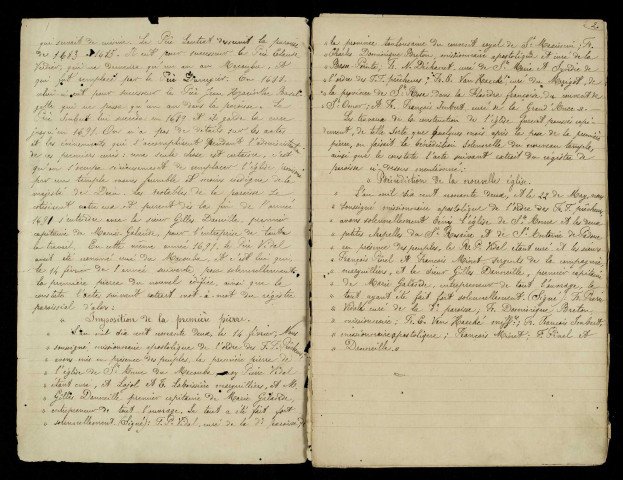 qui servait de cuisine. Le Père Lautret desservit la paroisse
de 1685 à 1687. Il eut pour successeur le Père
qui ne demeura qu'un an au Macouba. Il
fut remplacé par le Père En 1688.
celui-ci eut pour successeur le Père Jean Hyacinthe
qui ne passa qu'un an dans la paroisse. Le
Père Imbert lui succéda en 1689 et il garda la cure
jusqu'en 1691. On n'a pas de détails sur les actes
et les événements qui s'accomplirent pendant l'administration
de ces premiers curés: une seule chose est certaine, c'est
qu'on s'occupa activement de remplacer l'église
par un temple moins fragile et moins indigne de la
majesté de Dieu. Les notables de la paroisse
et purent dès la fin de l'année
1691 s'entendre avec le sieur Gilles Dauville, premier
capitaine de Marie Galande, pour l'entreprise de
travail. En cette même année 1691, le Père Vidal
avait été nommé curé du Macouba, et c'est lui qui
le 14 février de l'année suivante posa solennellement
la première pierre du nouvel édifice, ainsi que le
constate l'acte suivant extrait mot-à-mot du registre
paroissial d'alors:
" Imposition de la première pierre.
" L'an mil six cent nonante deux, le 14 février, Nous
" soussigné, missionnaire apostolique de l'ordre des F.F. Prêcheurs,
" avons mis en présence des peuples, la première pierre de
" l'église de Ste Anne du Macouba, Pierre Vidal
" étant curé, et Lajol et E. Laboissière marguilliers, et M.
" Gilles Dauville, premier capitaine de Marie Galande,
" entrepreneur de tout l'ouvrage. Le tout a été fait fort
" solennellement. (Signé): F. P. Vidal, curé de la dte paroisse
2
la province toulousaine du couvent royal de St Maximin; Fr.
Charles Dominique Breton, missionnaire apostolique et curé de la
Basse Pointe; Fr. M. curé de Ste Marie et Syndic de
l'ordre des F.F. Prêcheurs; Fr. C. Van Haecke curé du Marigot, de
la province de Ste Rose dans la Flandre française du couvent de
St Omer; et Fr. François Imbert, curé de la Grand'Anse. "
Les travaux de la construction de l'église furent poussés
de telle sorte que quelques mois après la pose de la première
pierre, on faisait la bénédiction solennelle du nouveau temple,
ainsi que le constate l'acte suivant extrait du registre de
paroisse ci-dessus mentionné:
" Bénédiction de la nouvelle église.
" L'an mil six cent nonante deux, et le 24 de May, nous
" soussigné missionnaire apostolique de l'Ordre des F.F. Prêcheurs
" avons solennellement béni l'église de Ste Anne et les deux
" petites chapelles du St Rosaire et de St Antoine de Padoue,
" en présence des peuples, le R. P. Vidal étant curé et les sieurs
" François Pinel et François Mirout, sergents de la compagnie
" marguilliers, et le sieur Gilles Dauville, premier capitaine
" de Marie Galande, entrepreneur de tout l'ouvrage, le
" tout ayant été fait fort solennellement. (Signé) Fr. Pierre
" Vidal curé de la dte paroisse; Fr. Dominique Breton,
" missionnaire; Fr. C. Van Haecke Fr. François Imbert
" missionnaire apostolique; François Mirout; F. Pinel et
" Dauville. "